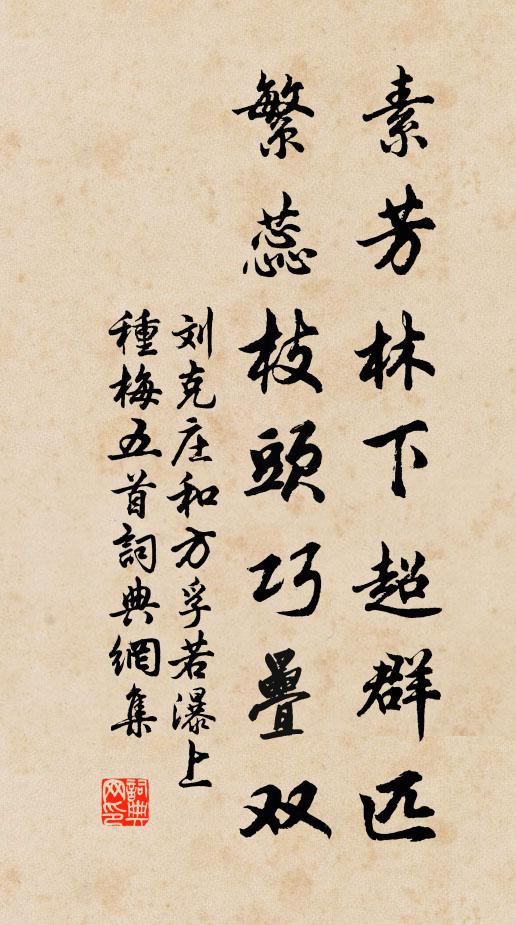 素芳林下超群匹
繁蕊枝頭巧疊双
刘克庄和方孚若瀑上
種梅五首詞典網集
詞典网印